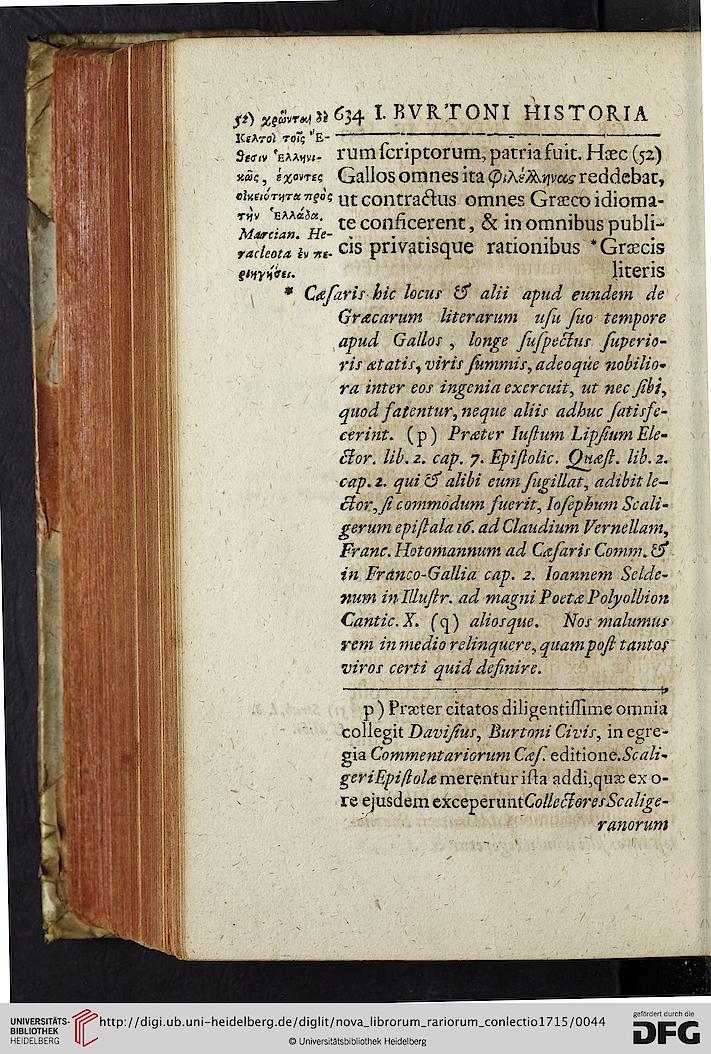 634 I. BVRTONI HISTORIA
rum ſcriptorum, patria fuit. Hæc (52)
Gallos omnes ita φιλέλληνας reddebat,
ut contractus omnes Græco idioma-
te conficerent, & in omnibus publi-
cis privatisque rationibus * Græcis
literis
52) χρῶνται δὲ
Κελτοὶ τοῖς Ἔ-
θεσιν Ἑλληνι-
κῶς, ἔχοντες
οἰκειότητα πρὸς
τὴν Ἑλλάδα.
Marcian. He-
racleota ἐν πε-
ριηγήσει.
* Cæſaris hic locus & alii apud eundem de
Græcarum literarum uſu ſuo tempore
apud Gallos, longe ſuſpectus ſuperio-
ris ætatis, viris ſummis, adeoque nobilio-
ra inter eos ingenia exercuit, ut nec ſibi,
quod fatentur, neque aliis adhuc ſatisfe-
cerint. (p) Præter Iuſtum Lipſium Ele-
ctor. lib. 2. cap. 7. Epiſtolic. Quæſt. lib. 2.
cap. 2. qui & alibi eum ſugillat, adibit le-
ctor, ſi commodum fuerit, Ioſephum Scali-
gerum epiſtala 16. ad Claudium Vernellam,
Franc. Hotomannum ad Cæſaris Comm. &
in Franco-Gallia cap. 2. Ioannem Selde-
num in Illuſtr. ad magni Poetæ Polyolbion
Cantic. X. (q) aliosque. Nos malumus
rem in medio relinquere, quam poſt tantos
viros certi quid definire.
p) Præter citatos diligentiſſime omnia
collegit Daviſius, Burtoni Civis, in egre-
gia Commentariorum Cæſ. editione. Scali-
geri Epiſtolæ merentur iſta addi, quæ ex o-
re ejusdem exceperunt Collectores Scalige-
ranorum
UNIVERSITÄTS-
BIBLIOTHEK
HEIDELBERG
http://digi.ub.uni-heidelberg.de/diglit/nova_librorum_rariorum_conlectio1715/0044
© Universitätsbibliothek Heidelberg
gefördert durch die
DFG